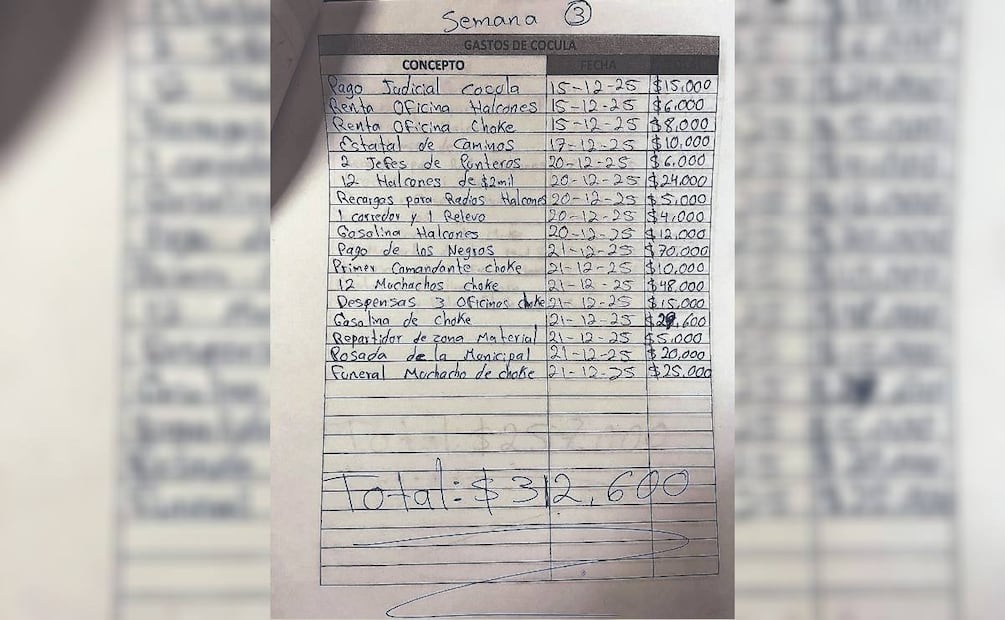 Semana 3
GASTOS DE COCULA
CONCEPTO FECHA
Pago Judicial Cocula 15-12-25 $15,000
Renta Oficina Halcones 15-12-25 $6,000
Renta Oficina Choke 15-12-25 $8,000
Estatal de Caminos 17-12-25 $10,000
2 Jefes de Punteros 20-12-25 $6,000
12 Halcones de $2mil 20-12-25 $24,000
Recargas para Radios Halcones 20-12-25 $5,000
1 corredor y 1 Relevo 20-12-25 $4,000
Gasolina Halcones 20-12-25 $12,000
Pago de los Negros 21-12-25 $70,000
Primer Comandante choke 21-12-25 $10,000
12 Muchachos choke 21-12-25 $48,000
Despensas 3 Oficinas choke 21-12-25 $15,000
Gasolina de Choke 21-12-25 $29,600
Repartidor de zona Material 21-12-25 $5,000
Posada de la Municipal 21-12-25 $20,000
Funeral Muchacho de choke 21-12-25 $25,000
Total: $312,600